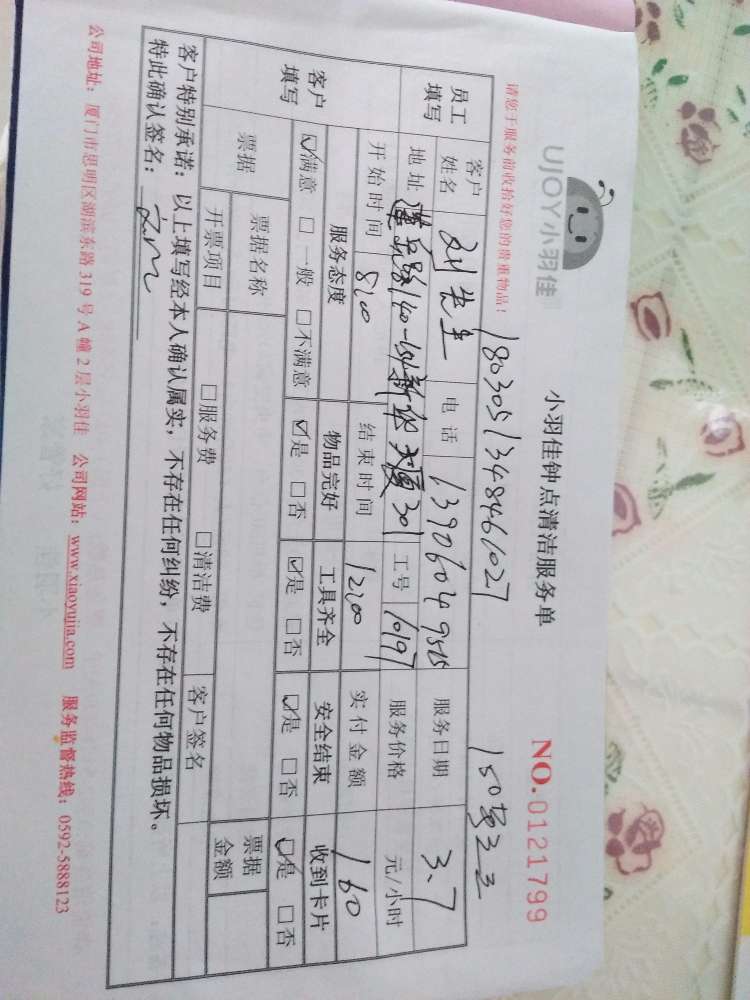 UJOY小羽佳
小羽佳钟点清洁服务单
NO.0121799
请您于服务前收拾好您的贵重物品！
1803051348461027
员工填写
客户姓名 刘先生 电话 服务日期 3.7
地址 工号 1097 服务价格 元/小时
开始时间 8:00 结束时间 12:00 实付金额 160
客户填写
服务态度 物品完好 工具齐全 安全结束 收到卡片
☑满意 □一般 □不满意 ☑是 □否 ☑是 □否 ☑是 □否 ☑是 □否
票据 票据名称 票据金额
开票项目 □服务费 □清洁费 客户签名
客户特别承诺：以上填写经本人确认属实，不存在任何纠纷，不存在任何物品损坏。
特此确认签名：
公司地址：厦门市思明区湖滨东路319号A幢2层小羽佳 公司网站：www.xiaoyujia.com 服务监督热线：0592-5888123